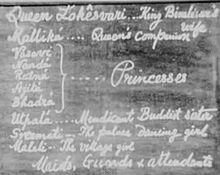 Queen Lokêsvari ... King Bimbisar's
wife
Mallika .... Queen's Companion
Vasavi
Nandá
Ratná
Ajitá
Bhadrá
Princesses
Utpalá ... Mendicant Buddist sister
Sreemati - The palace dancing girl
Malati - The village girl
Maids, Guards & attendants